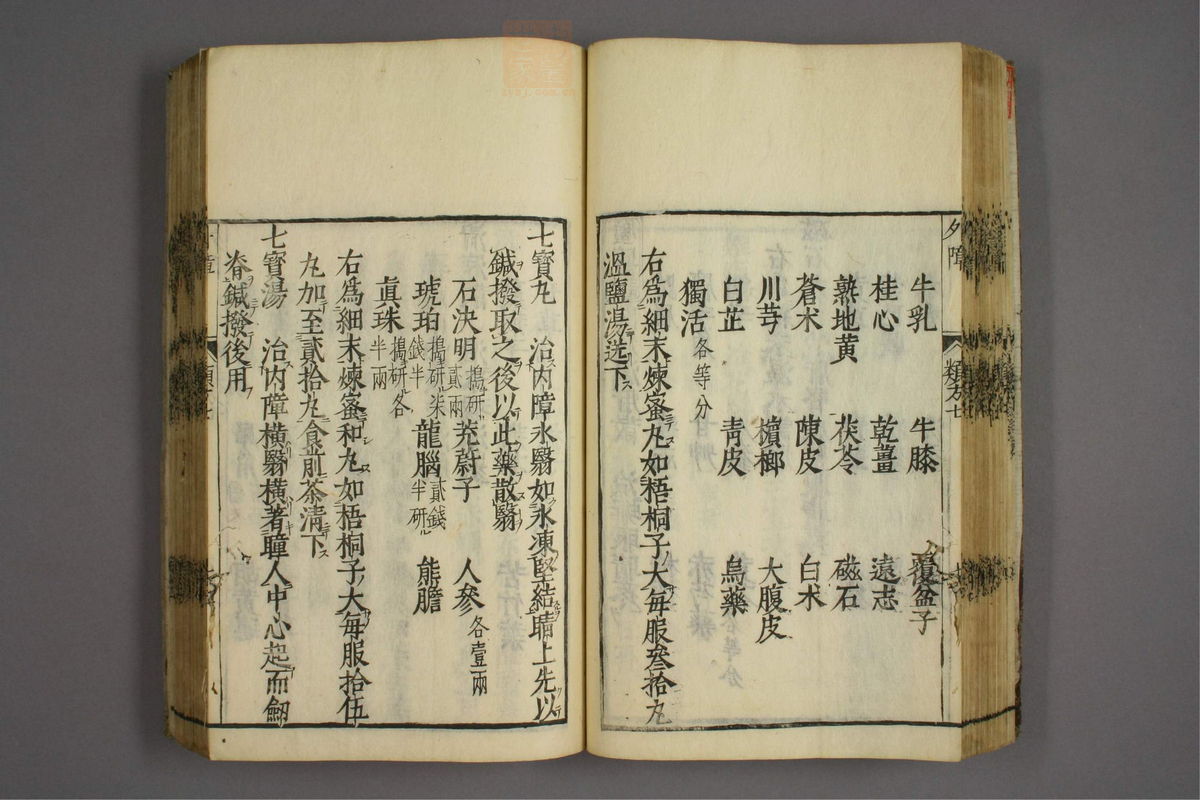 外障
類方七
牛乳 牛膝 覆盆子
桂心 乾薑 遠志
熟地黃 茯苓 磁石
蒼朮 陳皮 白朮
川芎 檳榔 大腹皮
白芷 青皮 烏藥
獨活各等分
右為細末煉蜜丸如梧桐子大每服叄拾丸
溫鹽湯送下
七寶丸 治内障氷翳如氷凍堅結睛上先以
鍼撥取之後以此藥散翳
石决明搗研貳兩 茺蔚子 人參各壹兩
琥珀搗研柒錢半 龍腦貳錢半研 熊膽
眞珠搗研各半兩
右為細末煉蜜和丸如梧桐子大每服拾伍
丸加至貳拾丸食前茶清下
七寶湯 治内障横翳横著瞳人中心起而劒
脊鍼撥後用